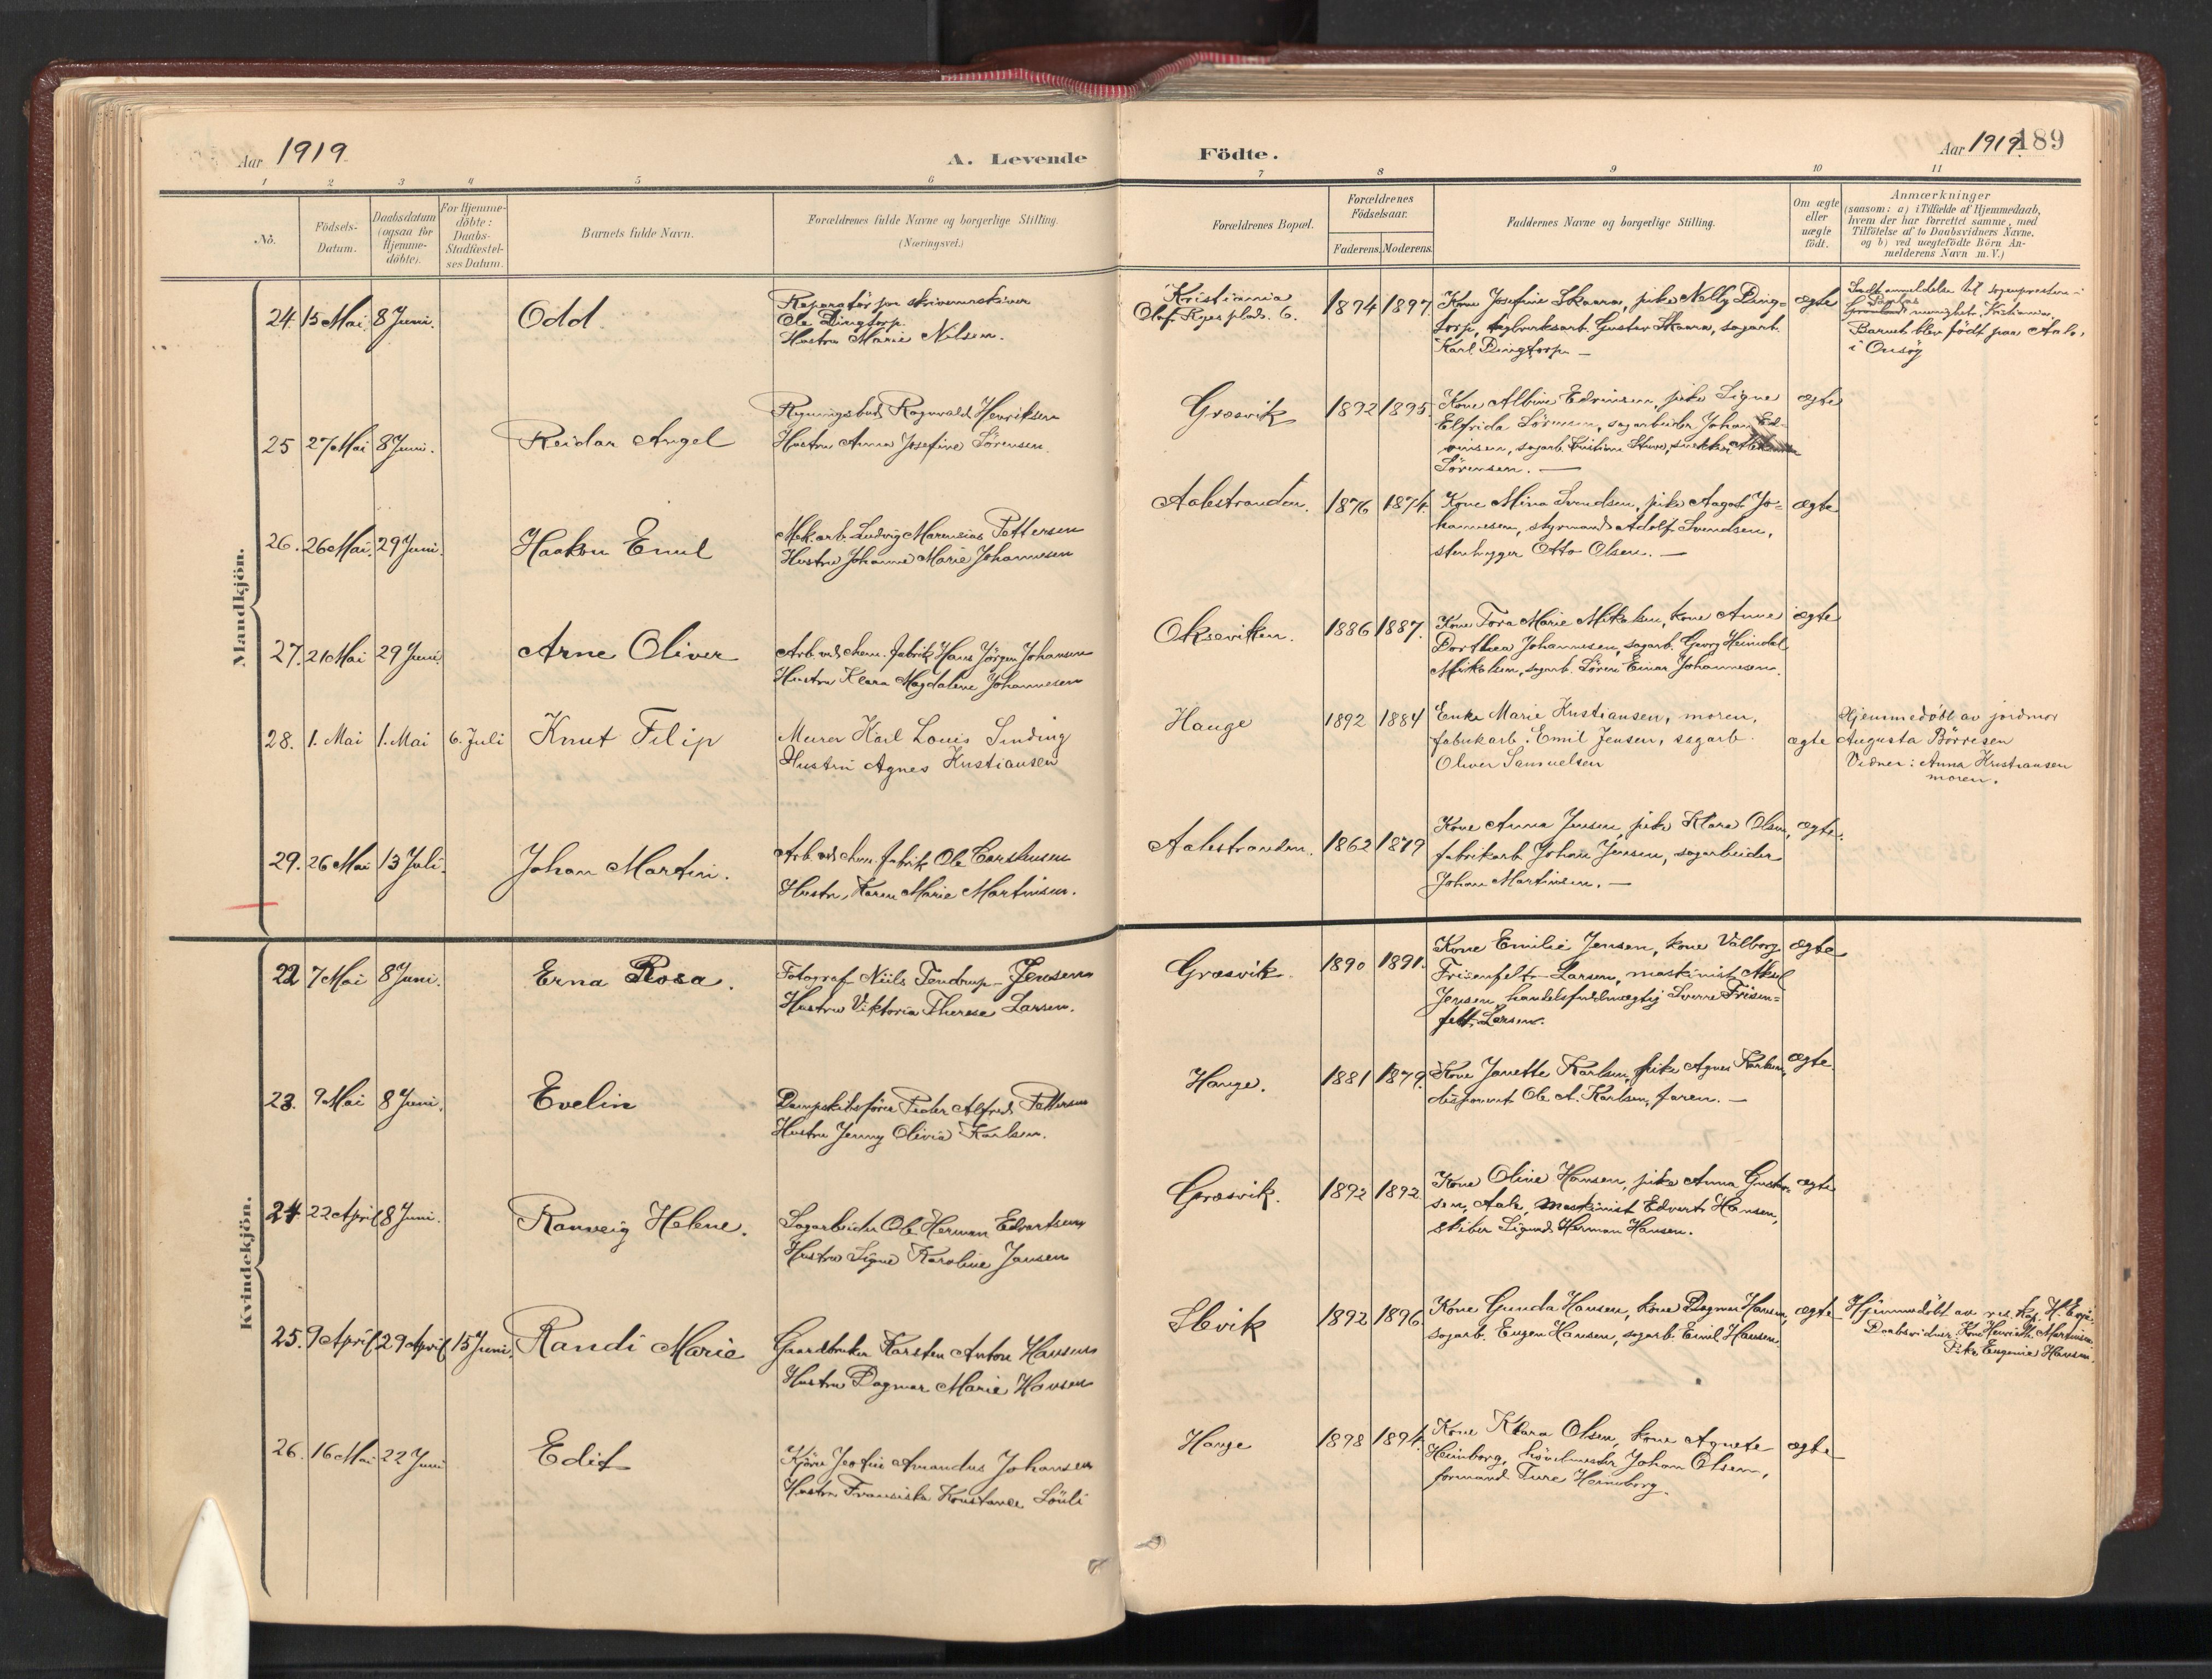 Aar 1919.
A. Levende
Födte.
Aar 1919.
189
1 2 3 4 5 6 7 8 9 10 11
No.
Födsels-
Datum.
Daabsdatum
(ogsaa for
Hjemme-
döbte).
For Hjemme-
döbte:
Daabs-
Stadfæstel-
ses Datum.
Barnets fulde Navn.
Forældrenes fulde Navne og borgerlige Stilling.
(Næringsvei.)
Forældrenes Bopæl.
Forældrenes
Födselsaar.
Faderens. Moderens.
Faddernes Navne og borgerlige Stilling.
Om ægte
eller
uægte
født.
Anmærkninger
(saasom: a) i Tilfælde af Hjemmedaab,
hvem der har forrettet samme, med
Tilföielse af to Daabsvidners Navne,
og b) ved uægtefödte Börn An-
melderens Navn m. V.)
Mandkjön.
24. 15 Mai. 8 Juni. Odd
Reparatör for skrivemaskiner
Ole Dingtorp
Hustru Marie Nilsen.
Kristiania
Olaf Ryes plads. 6.
1894 1897.
Kone Josefine Skaara, pike Nelly Ding-
torp, sagbruksarb. Gustav Skaara, sagarb.
Karl Dingtorp. —
ægte
Indt anmeldelse til sognepresten i
menighet, Kristiania.
Barnet blev født paa Aale,
i Onsøy
25 27 Mai 8 Juni. Reidar Angel
Ragnvald Henriksen
Hustru Anna Josefine Sörensen.
Græsvik
1892 1895.
Kone Albine Edvinsen, pike Signe
Elfrida Sörensen, sagarbeider Johan Ed-
vinsen, sagarb. Kristian
Sörensen. —
ægte
26. 26 Mai. 29 Juni. Haakon Emil
Mek. arb. Ludvig Marensius Pettersen
Hustru Johanne Marie Johannesen
Aalestranden.
1876 1874.
Kone Mina Svendsen, pike Aagot Jo-
hannesen, styrmand Adolf Svendsen,
stenhugger Otto Olsen. —
ægte
27. 21 Mai 29 Juni Arne Oliver
Arb. ved chem. fabrik Hans Jörgen Johansen
Hustru Klara Magdalene Johannesen
Okseviken.
1886 1887.
Kone Tora Marie Mikalsen, kone Anne
Dorthea Johannesen, sagarb. Georg Heimdal
Mikalsen, sagarb. Sören Einar Johannesen.
ægte
28. 1. Mai 1. Mai 6. Juli Knut Filip
Murer Karl Louis Sinding
Hustru Agnes Kristiansen
Hauge
1892 1884
Enke Marie Kristiansen, moren,
fabrikarb. Emil Jensen, sagarb.
Oliver Samuelsen
ægte
Hjemmedøbt av jordmor
Augusta Börresen
Vidner: Anna Kristiansen
moren.
29. 26 Mai 13 Juli. Johan Martin.
Arb. ved chem. fabrik Ole Carstensen
Hustru Karen Marie Martinsen.
Aalestranden.
1862 1879
Kone Anna Jensen, pike Klara Olsen,
fabrikarb. Johan Jensen, sagarbeider
Johan Martinsen. —
ægte.
Kvindekjön.
22 7 Mai 8 Juni. Erna Rosa.
Fotograf Niils Tendrup-Jensen
Hustru Viktoria Therese Larsen.
Græsvik.
1890 1891.
Kone Emilie Jensen, kone Valborg
Frisenfelt-Larsen, maskinist Aksel
Jensen, handelsfuldmægtig Sverre Frisen-
felt-Larsen.
ægte
23. 9 Mai 8 Juni. Evelin
Dampskibsfører Peder Alfred Pettersen
Hustru Jenny Olivia Karlsen.
Hauge.
1881 1879.
Kone Janette Karlsen, pike Agnes Karlsen,
disponent Ole A. Karlsen, faren. —
ægte.
24 22 April 8 Juni. Ranveig Helene.
Sagarbeider Ole Herman Edvartsen
Hustru Signe Karoline Jansen
Græsvik.
1892 1892.
Kone Oline Hansen, pike Anna Gustav-
sen, Aale, maskinist Edvart Hansen,
skiber Sigurd Herman Hansen.
ægte
25. 9 April 29 April 15 Juni. Randi Marie
Gaardbruker Karsten Anton Hansen
Hustru Dagmar Marie Hansen
Slevik
1892 1896
Kone Gunda Hansen, kone Dagmar Hansen,
sagarb. Eugen Hansen, sagarb. Emil Hansen.
ægte
Hjemmedöbt av res. kap. H.
Daabsvidner: Kone Henriette Martinsen
Pike Eugenie Hansen.
26. 16 Mai 22 Juni Edit
Amandus Johansen
Hustru Fransiska Konstance Söuli
Hauge
1898 1894.
Kone Klara Olsen, kone Agnete
Heimborg, Johan Olsen,
formand Ture Heimborg.
ægte